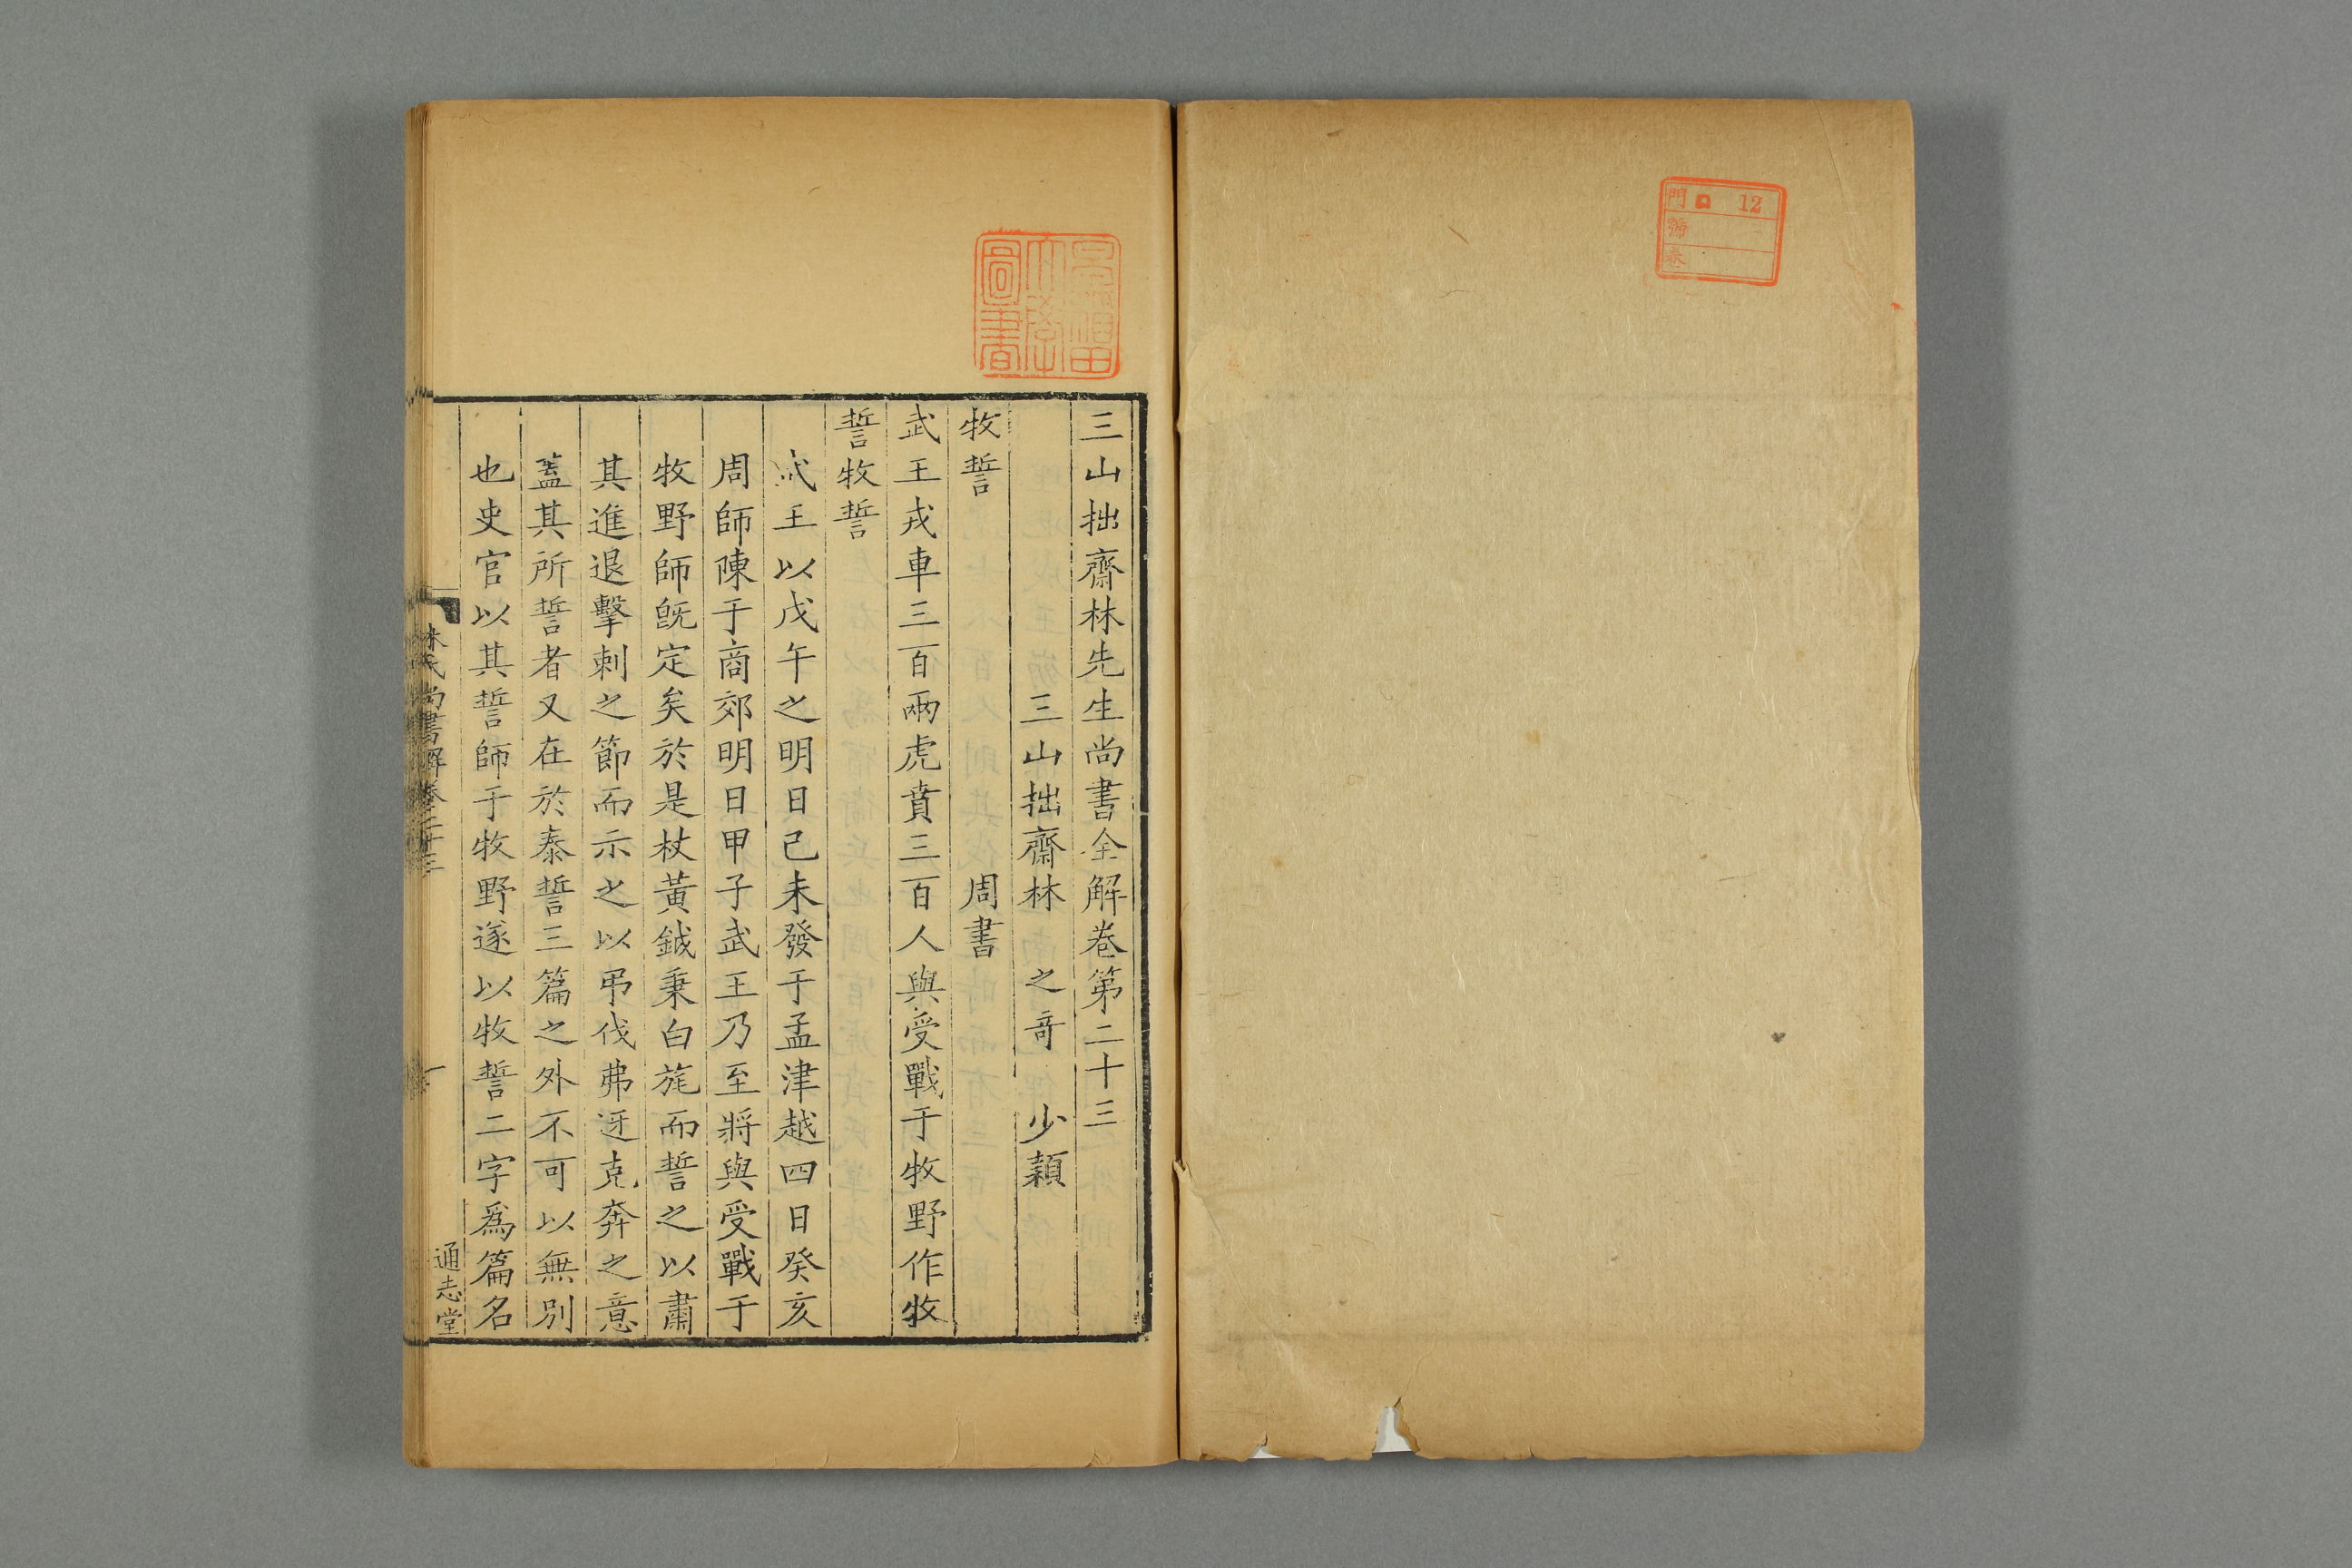 門 ロ 12
號
卷
早稲田大學圖書
三山拙齋林先生尚書全解卷第二十三
三山拙齋林 之奇 少穎
牧誓 周書
武王戎車三百兩虎賁三百人與受戰于牧野作牧
誓牧誓
武王以戊午之明日己未發于孟津越四日癸亥
周師陳于商郊明日甲子武王乃至將與受戰于
牧野師旣定矣於是杖黃鉞秉白旄而誓之以肅
其進退擊刺之節而示之以弔伐弗迓克奔之意
蓋其所誓者又在於泰誓三篇之外不可以無別
也史官以其誓師于牧野遂以牧誓二字爲篇名
林氏尚書解卷二十三 一 通志堂